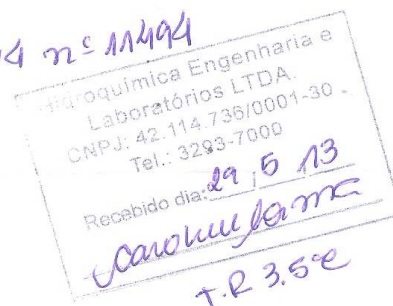 4 nº 11494
Hidroquímica Engenharia e
Laboratórios LTDA.
CNPJ: 42.114.736/0001-30
Tel.: 3293-7000
Recebido dia: 29 / 5 / 13
T.R 3.5ºC